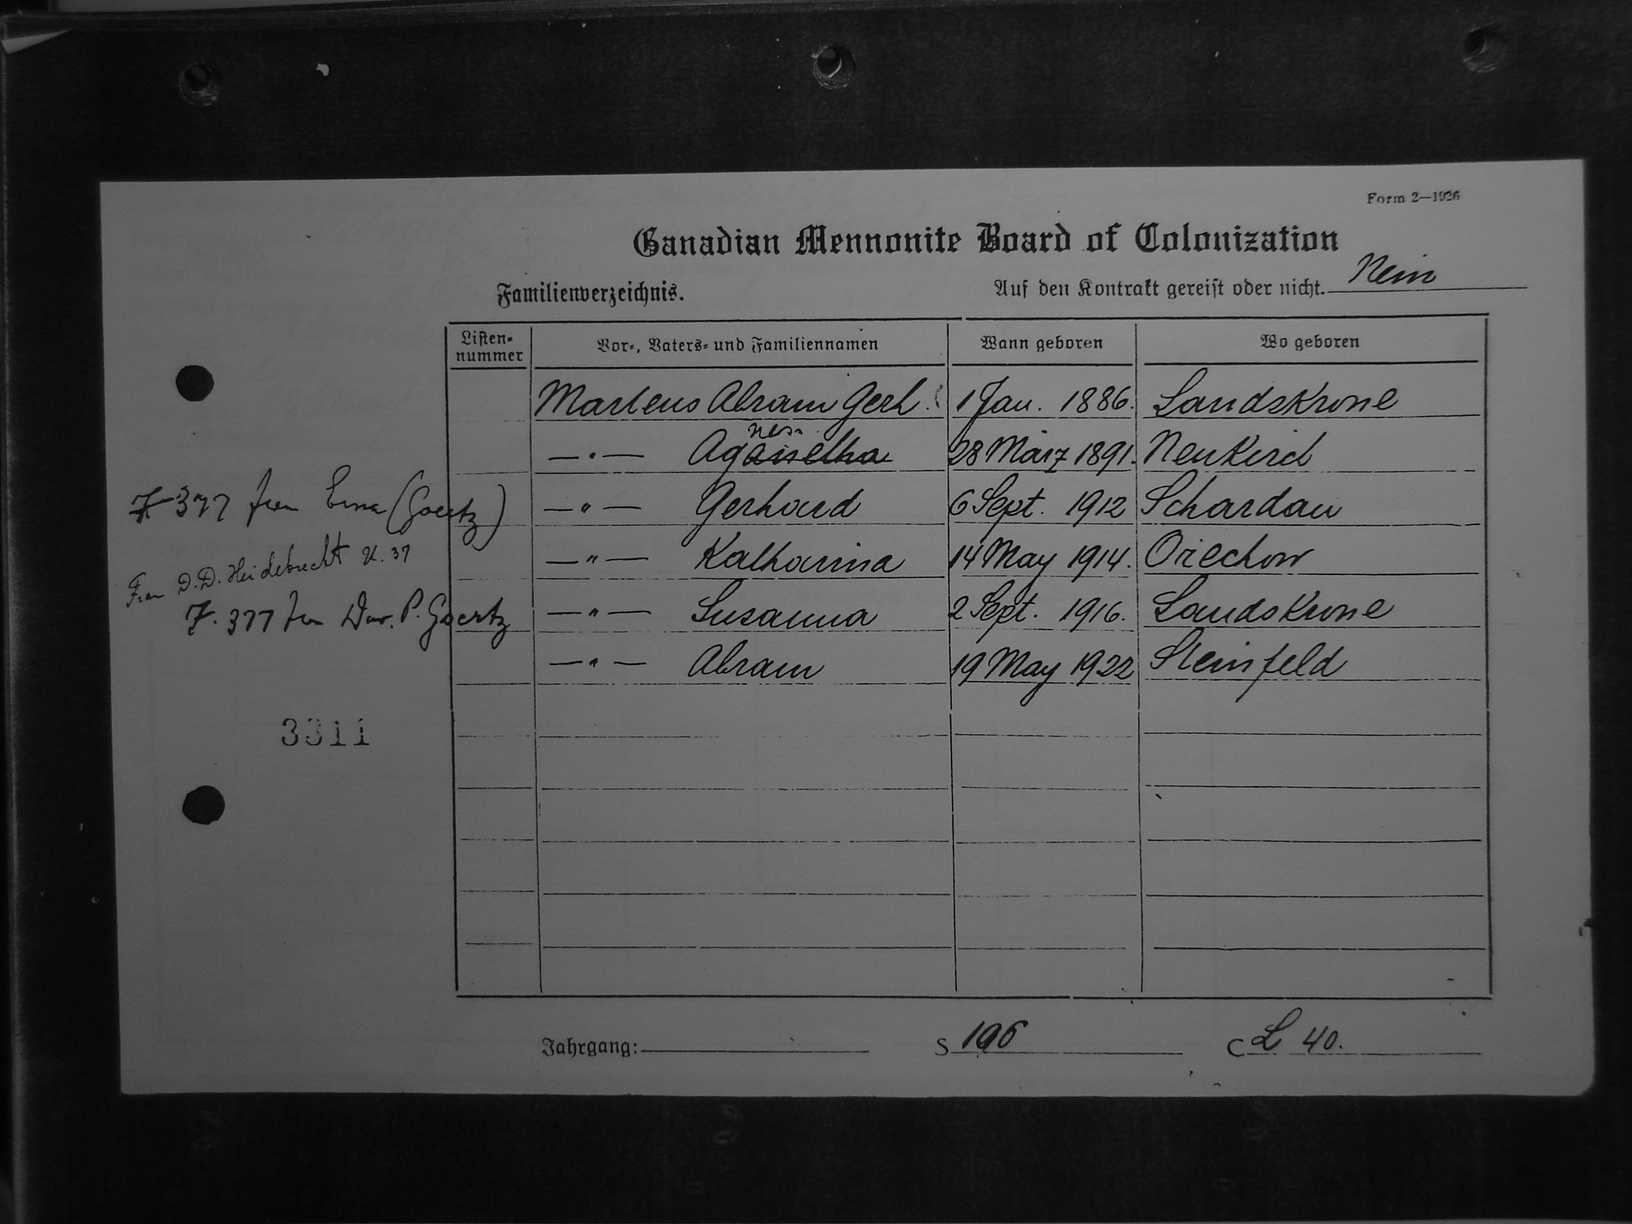 Form 2—1926
Canadian Mennonite Board of Colonization
Familienverzeichnis. Auf den Kontrakt gereist oder nicht. Nein
Listen-nummer Vor-, Vaters- und Familiennamen Wann geboren Wo geboren
Martens Abram Gerh. 1 Jan. 1886. Landskrone
—"— Aganetha nes 28 März 1891. Neukirch
F 377 Frau Erna (Goertz) —"— Gerhard 6 Sept. 1912 Schardau
Frau D.D. Heidebrecht K. 37 —"— Katharina 14 May 1914. Oriechow
F. 377 Frau P. Goertz —"— Susanna 2 Sept. 1916. Landskrone
—"— Abram 19 May 1922 Steinfeld
3311
Jahrgang: S 196 C L 40.